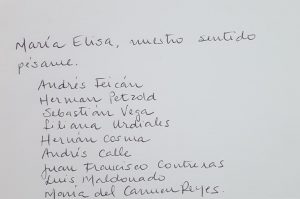 María Elisa, nuestro sentido
pésame.
Andrés Feicán
Herman Petzold
Sebastián Vega
Liliana Urdiales
Hernán Cosma
Andrés Calle
Juan Francisco Contreras
Luis Maldonado
María del Carmen Reyes.